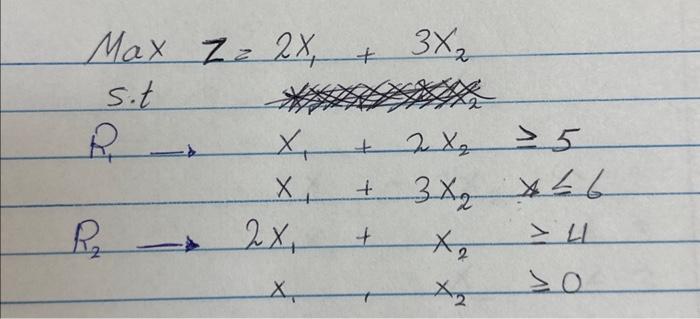 Max Z = 2X₁ + 3X₂
s.t
R₁ → X₁ + 2X₂ ≥ 5
X₁ + 3X₂ ≤ 6
R₂ → 2X₁ + X₂ ≥ 4
X₁ , X₂ ≥ 0